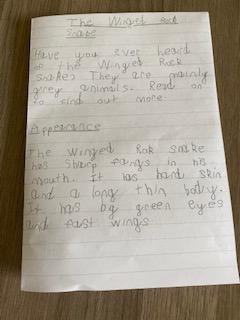 The Winged Rock
Snake
Have you ever heard
of the Winged Rock
Snake? They are mainly
grey animals. Read on
to find out more.
Appearance
The Winged Rok snake
has sharp fangs in his
mouth. It has hard skin
and a long thin body.
It has big green eyes
and fast wings